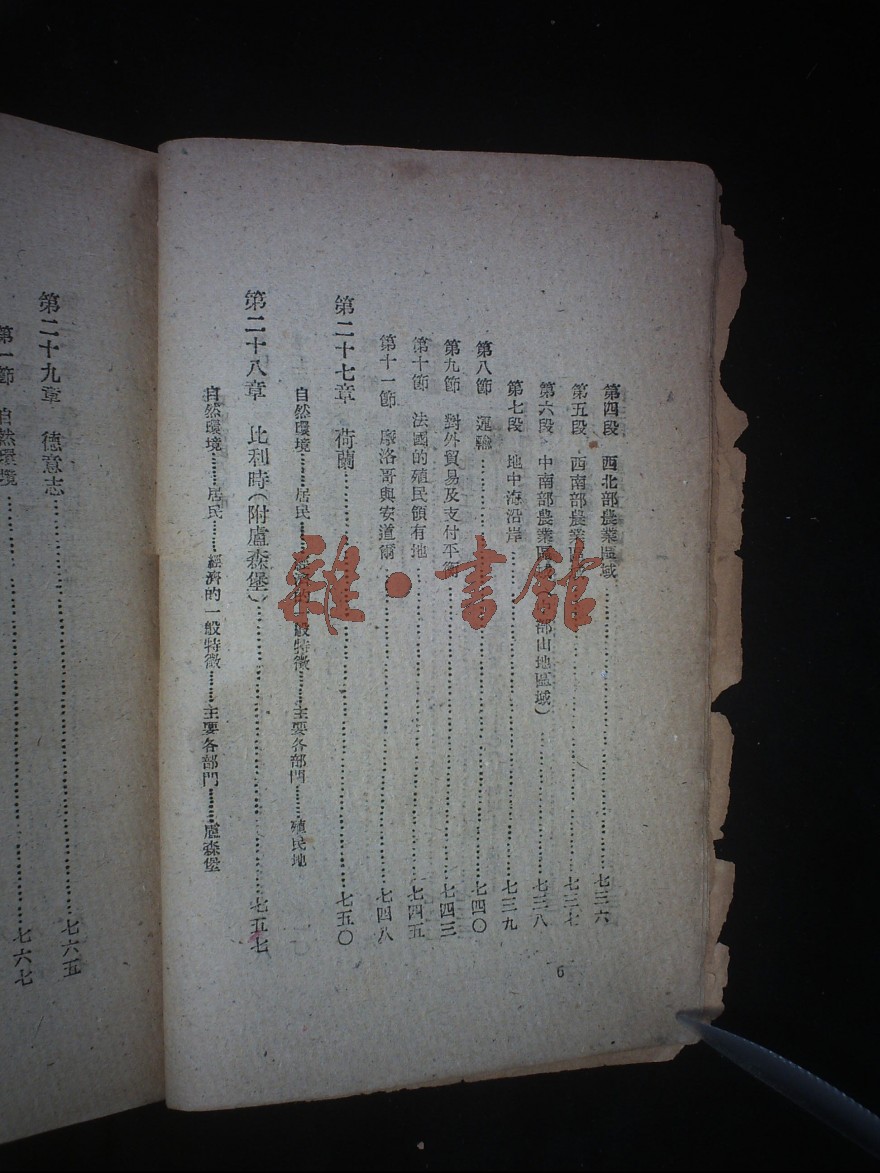 第四段　西北部農業區域……七三六
第五段　西南部農業區……七三七
第六段　中南部農業區 部山地區域）……七三八
第七段　地中海沿岸……七三九
第八節　運輸……七四〇
第九節　對外貿易及支付平衡……七四三
第十節　法國的殖民領有地……七四五
第十一節　摩洛哥與安道爾……七四八
第二十七章　荷蘭……七五〇
自然環境……居民……經濟的一般特徵……主要各部門……殖民地
第二十八章　比利時（附盧森堡）……七五七
自然環境……居民……經濟的一般特徵……主要各部門……盧森堡
6
第二十九章　德意志……七六五
第一節　自然環境……七六七
雜·書館